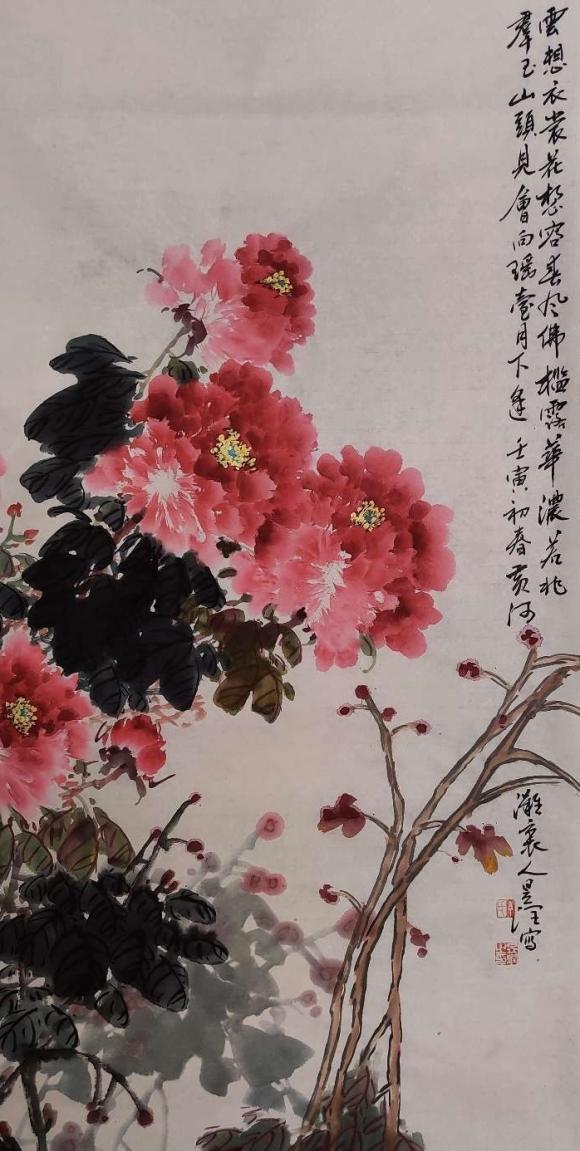 雲想衣裳花想容春风佛槛露華濃若非
羣玉山頭見會向瑶臺月下逢 壬寅初春黄河
灘裏人昱寫